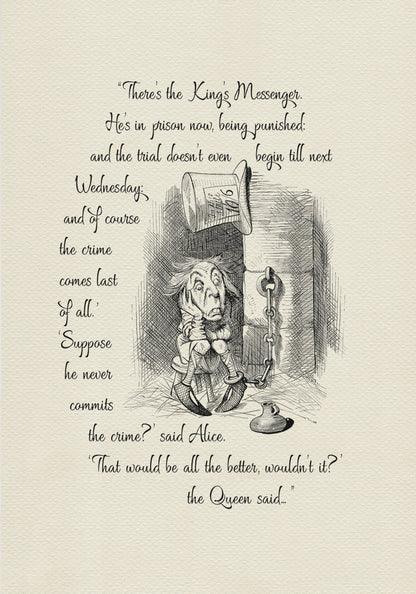 “There's the King's Messenger.
He's in prison now, being punished:
and the trial doesn't even begin till next
Wednesday;
and of course
the crime
comes last
of all.’
‘Suppose
he never
commits
the crime?’ said Alice.
‘That would be all the better, wouldn't it?’
the Queen said...”
10/6